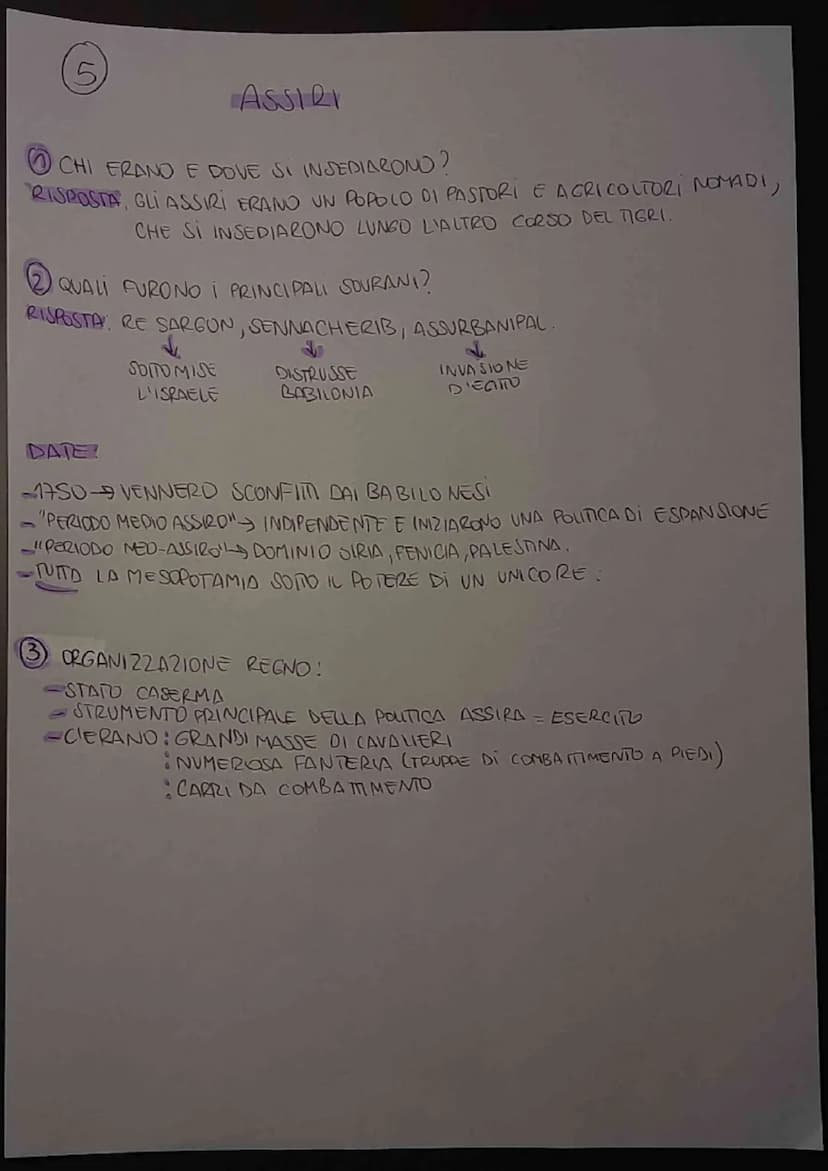 5
ASSIRI
1 CHI ERANO E DOVE SI INSEDIARONO?
RISPOSTA. GLI ASSIRI ERANO UN POPOLO DI PASTORI E AGRICOLTORI NOMADI,
CHE SI INSEDIARONO LUNGO L'ALTRO CORSO DEL TIGRI.
2 QUALI FURONO I PRINCIPALI SOVRANI?
RISPOSTA. RE SARGON, SENNACHERIB, ASSURBANIPAL.
↓ ↓ ↓
SOTTOMISE DISTRUSSE INVASIONE
L'ISRAELE BABILONIA D'EGITTO
DATE:
-1750→ VENNERO SCONFITTI DAI BABILONESI
-"PERIODO MEDIO ASSIRO"→ INDIPENDENTE E INIZIARONO UNA POLITICA DI ESPANSIONE
-"PERIODO NEO-ASSIRO"→ DOMINIO SIRIA, FENICIA, PALESTINA.
-TUTTA LA MESOPOTAMIA SOTTO IL POTERE DI UN UNICO RE.
3 ORGANIZZAZIONE REGNO:
-STATO CASERMA
- STRUMENTO PRINCIPALE DELLA POLITICA ASSIRA = ESERCITO
-C'ERANO: GRANDI MASSE DI CAVALIERI
: NUMEROSA FANTERIA (TRUPPE DI COMBATTIMENTO A PIEDI)
: CARRI DA COMBATTIMENTO